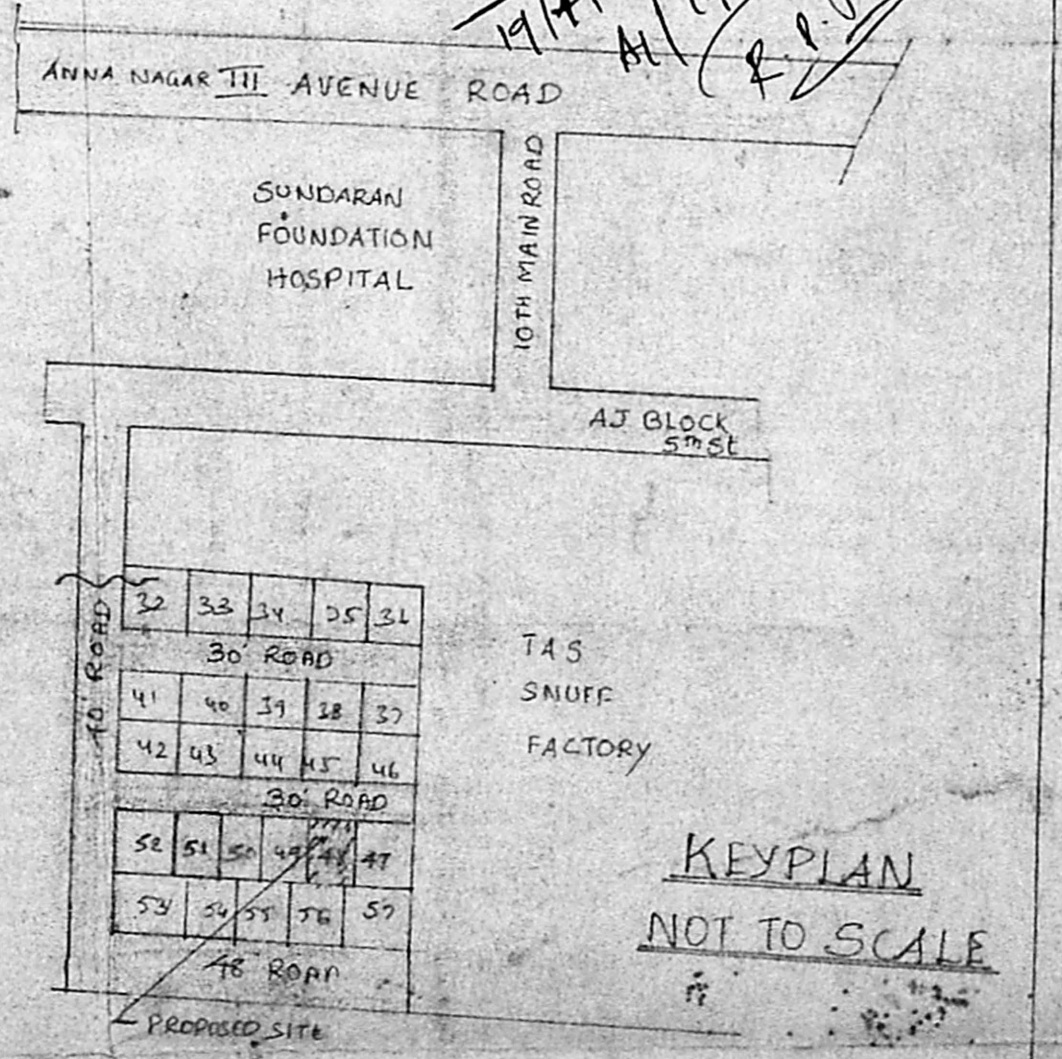 19/
AL/
(R.P.
ANNA NAGAR III AVENUE ROAD
SUNDARAN
FOUNDATION
HOSPITAL
10TH MAIN ROAD
AJ BLOCK
5th St
32 33 34 35 36
30' ROAD
40' ROAD
41 40 39 38 37
42 43 44 45 46
30' ROAD
52 51 50 49 48 47
53 54 55 56 57
48 ROAD
PROPOSED SITE
TAS
SNUFF
FACTORY
KEYPLAN
NOT TO SCALE